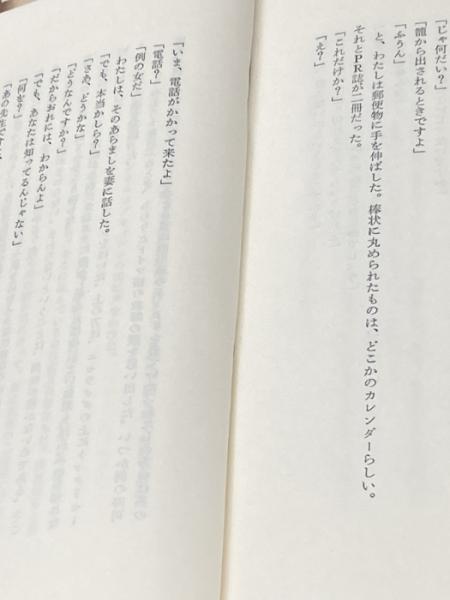 「じゃ何だい？」
「籠から出されるときですよ」
「ふうん」
と、わたしは郵便物に手を伸ばした。棒状に丸められたものは、どこかのカレンダーらしい。
それとPR誌が二冊だった。
「これだけか？」
「え？」
「いま、電話がかかって来たよ」
「電話？」
「例の女だ」
わたしは、そのあらましを妻に話した。
「でも、本当かしら？」
「さあ、どうかな」
「どうなんですか？」
「だからおれには、わからんよ」
「でも、あなたは知ってるんじゃない」
「何を？」
「あの先生です